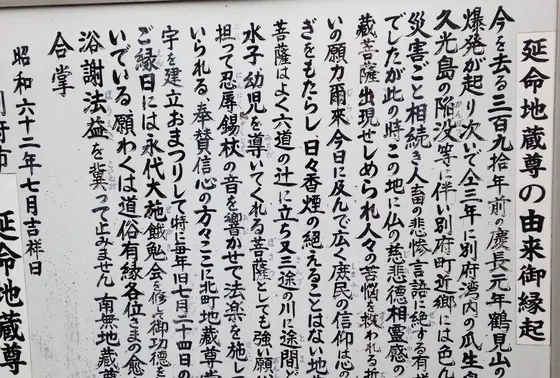 延命地蔵尊の由来御縁起
今を去る三百九拾年前の慶長元年鶴見山の
爆発が起り次いで仝三年に別府湾内の瓜生
久光島の陥没等に伴い別府町近郷には色ん
災害ごと相続き人畜の悲惨言語に絶する有
でしたが此の時この地に仏の慈悲徳相霊感の
蔵菩薩出現せしめられ人々の苦悩を救われる折
いの願力爾來今日に及んで広く庶民の信仰は心の
ぎをもたらし日々香煙の絶えることはない地
菩薩はよく六道の辻に立ち又三途の川に途間ど
水子、幼児を導いてくれる菩薩としても強い願
担って忍辱錫杖の音を響かせて法楽を施し
いられる 奉賛信心の方々ここに北町地蔵尊堂
宇を建立おまつりして時に毎年旧七月二十四日の
ご縁日には永代大施餓鬼会を修し御功徳を
いでいる 願わくは道俗有縁各位さまの愈
浴謝法益を冀って止みません 南無地蔵尊
合掌
昭和六十二年七月吉祥日
別府市
延命地蔵尊